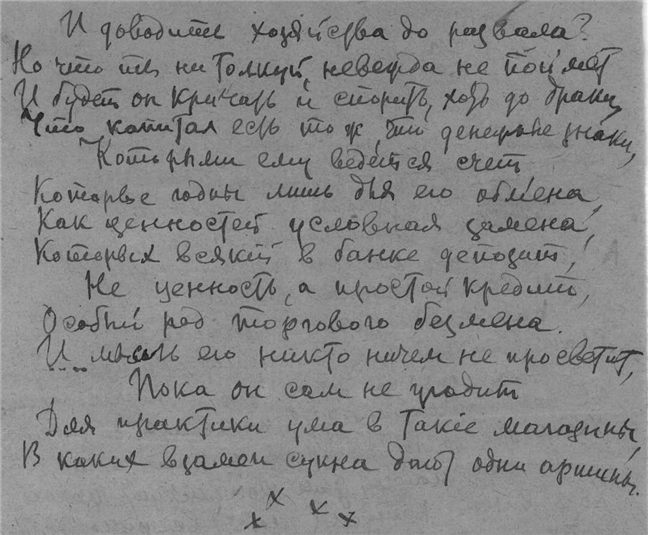 И доводить хозяйства до развала?
Но что ты ни толкуй, невежда не поймет
И будет он кричать и спорить, хоть до драки,
Что капитал есть то ж, что денежные знаки,
Которыми ему ведется счет
Которые годны лишь для его обмена,
Как ценностей условная замена,
Которых всякий в банке депозит,
Не ценность, а простой кредит,
Особый род торгового безмена.
И мысль его никто ничем не просветит,
Пока он сам не угодит
Для практики ума в такие магазины,
В каких взамен сукна дают одни аршины.
х х х х